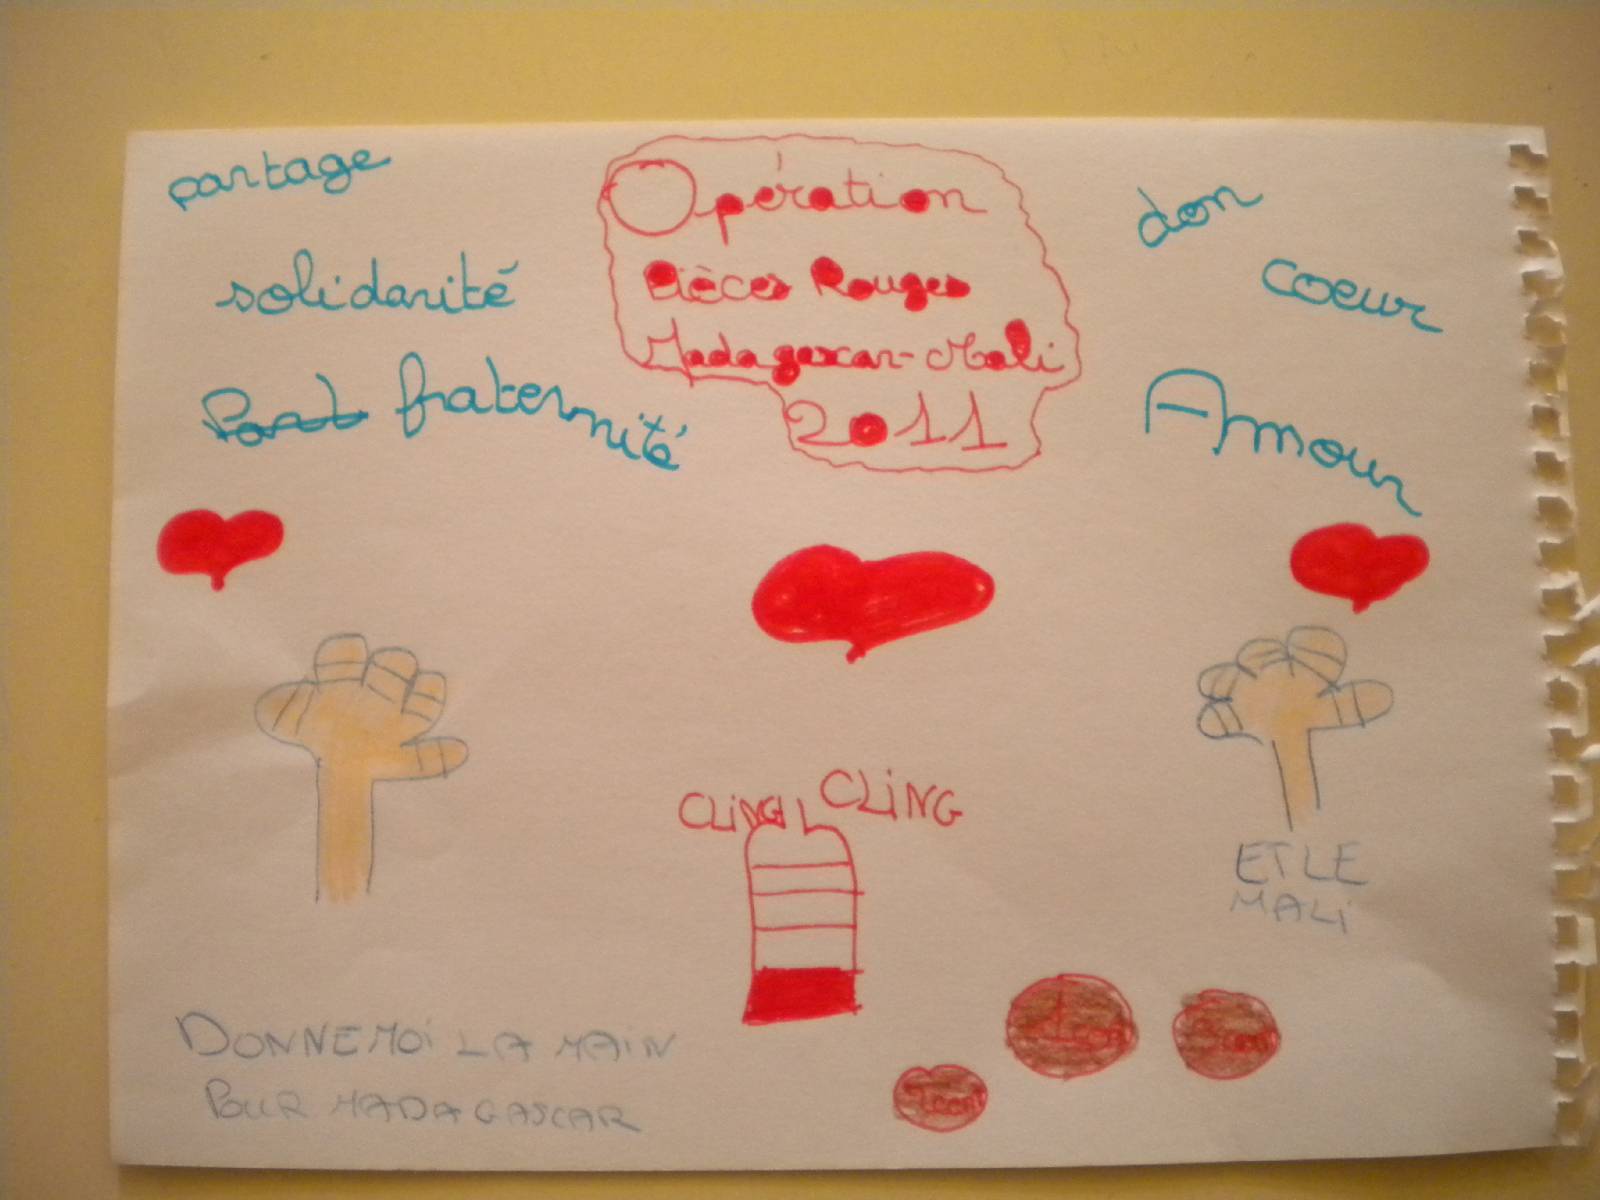 partage
solidarité
fraternité
Opération
Pièces Rouges
Madagascar-Mali
2011
don
coeur
Amour
CLiNG CLiNG
ET LE
MALi
DONNE MOi LA MAiN
POUR MADAGASCAR
1 cent